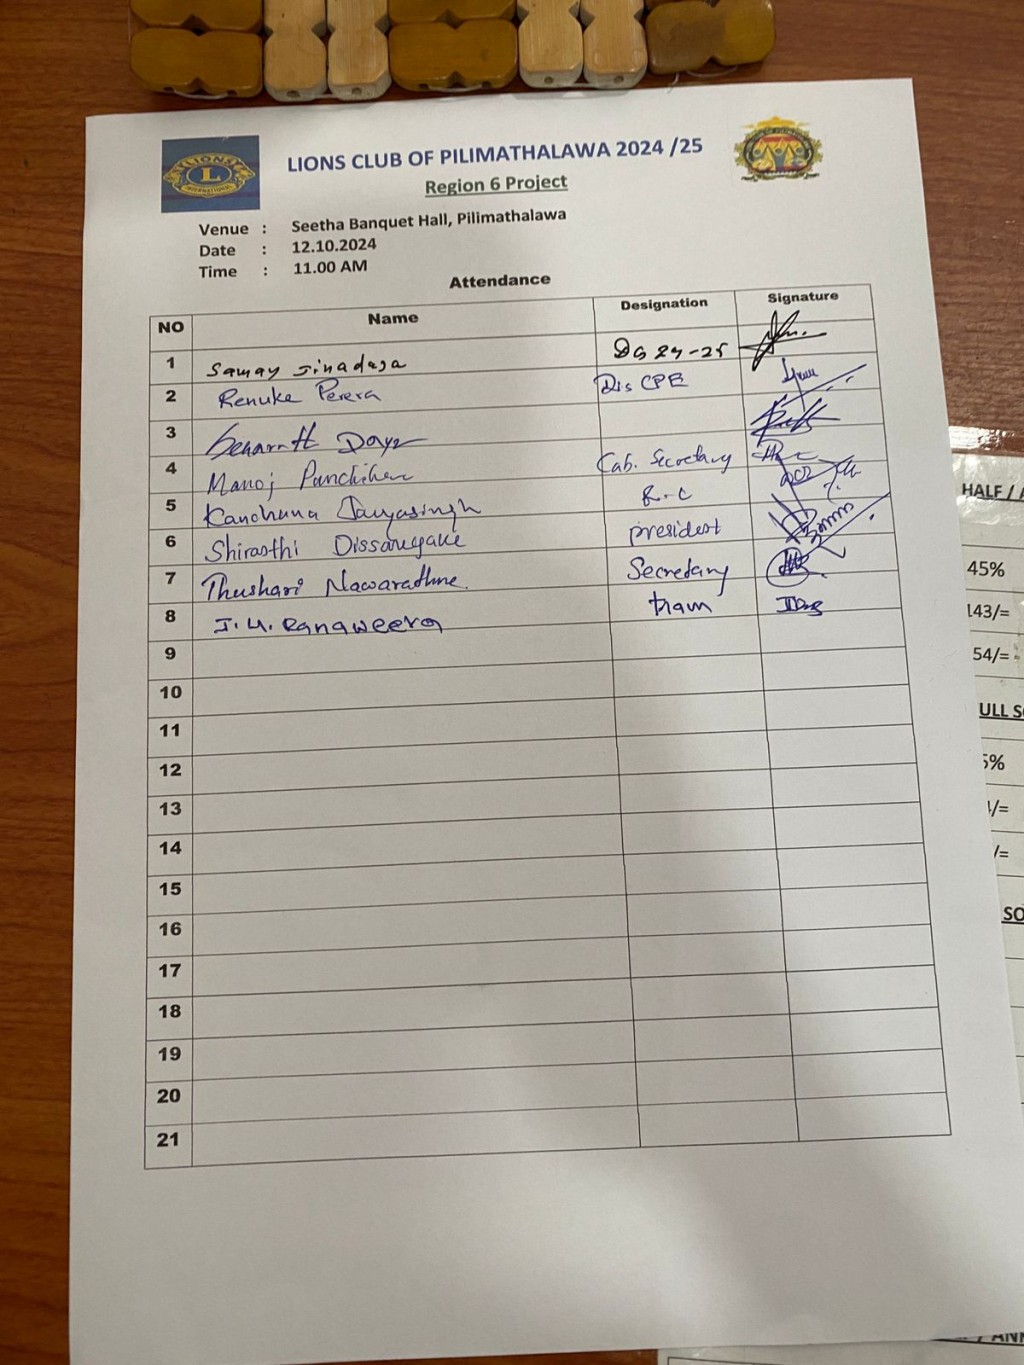 LIONS CLUB OF PILIMATHALAWA 2024 /25
LIONS
L
INTERNATIONAL
Region 6 Project
Venue : Seetha Banquet Hall, Pilimathalawa
Date : 12.10.2024
Time : 11.00 AM
Attendance
NO Name Designation Signature
1 Samay Jinadasa DG 24-25
2 Renuke Perera Dis CPE
3
4 Manoj Cab. Secretary
5 Kanchana Jayasingh R.C
6 Shirasthi Dissanayake president
7 Thushari Nawarathne. Secretary
8 J.U. Ranaweera
9
10
11
12
13
14
15
16
17
18
19
20
21
HALF / A
45%
143/=
54/=
ULL SO
5%
/=
/=
SO
/ ANN